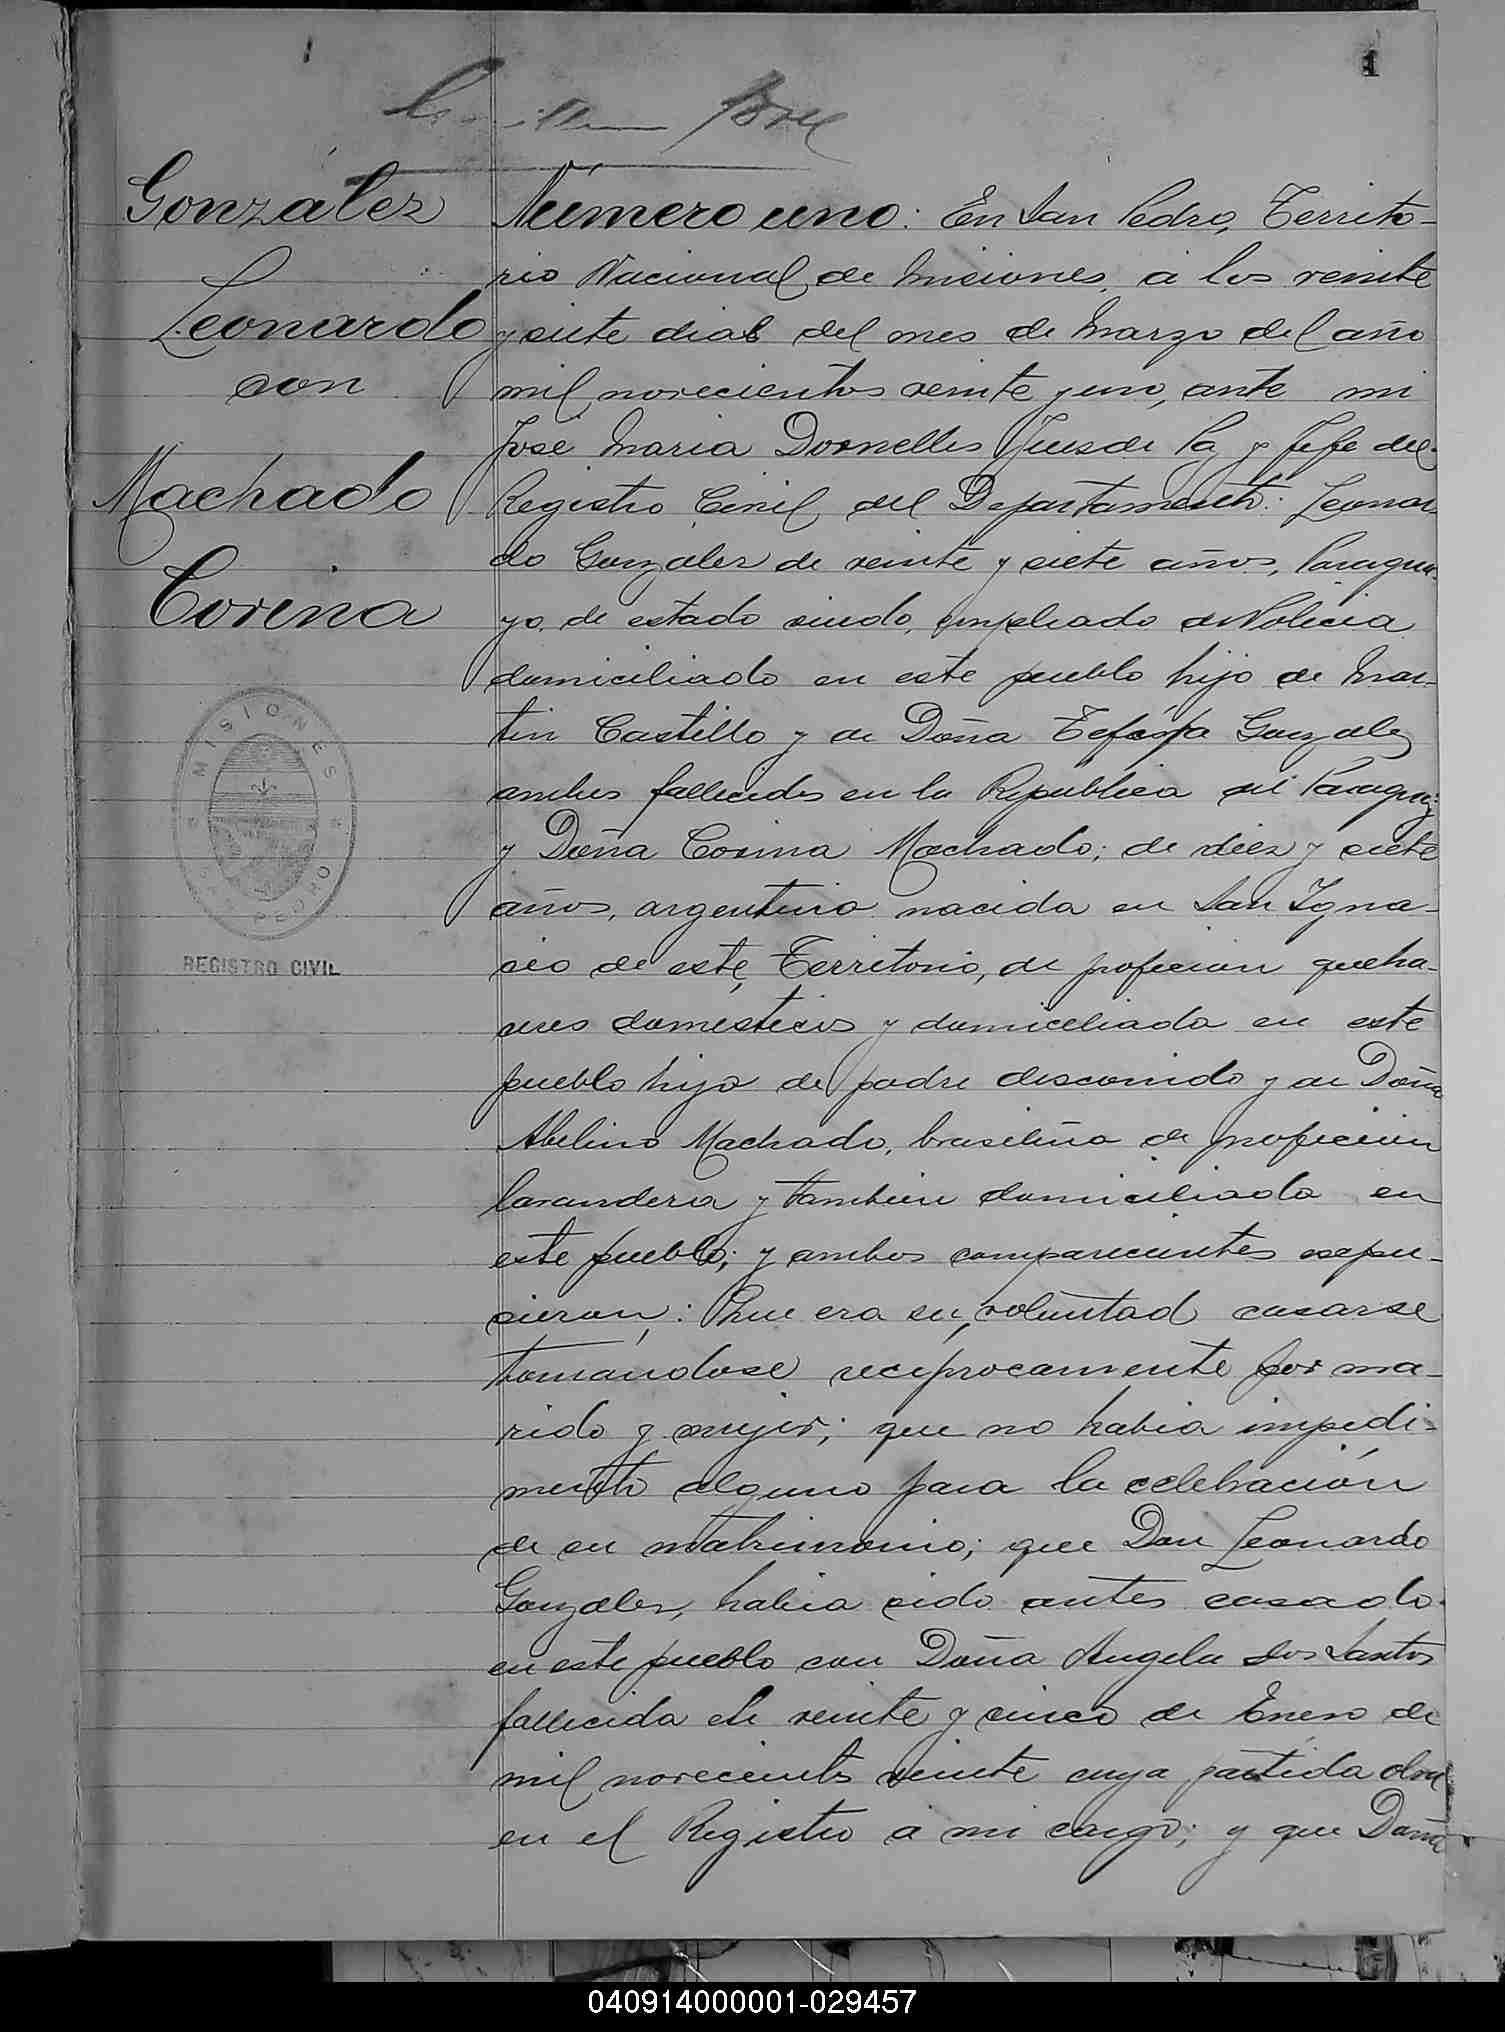 1
González
Leonardo
con
Machado
Corina
MISIONES
SAN PEDRO
REGISTRO CIVIL
Número uno: En San Pedro, Territo-
rio Nacional de Misiones, á los veinte
y siete dias del mes de Marzo del año
mil novecientos veinte y uno, ante mi
José Maria Dornelles Jues de Paz y Jefe del
Registro Civil del Departamento: Leonar-
do Gonzalez de veinte y siete años, Paragua-
yo, de estado viudo, empleado de Policia
domiciliado en este pueblo hijo de Mar-
tin Castillo y de Doña Gonzalez
ambos fallecidos en la Republica del Paraguay
y Doña Corina Machado; de diez y siete
años, argentina nacida en San Igna-
cio de este Territorio, de profecion queha-
ceres domesticos y domiciliada en este
pueblo hija de padre desconido y de Doña
Abelina Machado, brasileña de profecion
lavandera y tambien domiciliada en
este pueblo; y ambos comparecientes expu-
cieron: Que era su voluntad casarse
tomandose reciprocamente por ma-
rido y mujer; que no habia impedi-
mento alguno para la celebración
de su matrimonio; que Don Leonardo
Gonzalez, habia sido antes casado
en este pueblo con Doña Angela dos Santos
fallecida el veinte y cinco de Enero de
mil novecientos veinte cuya partida obra
en el Registro a mi cargo; y que Doña
040914000001-029457